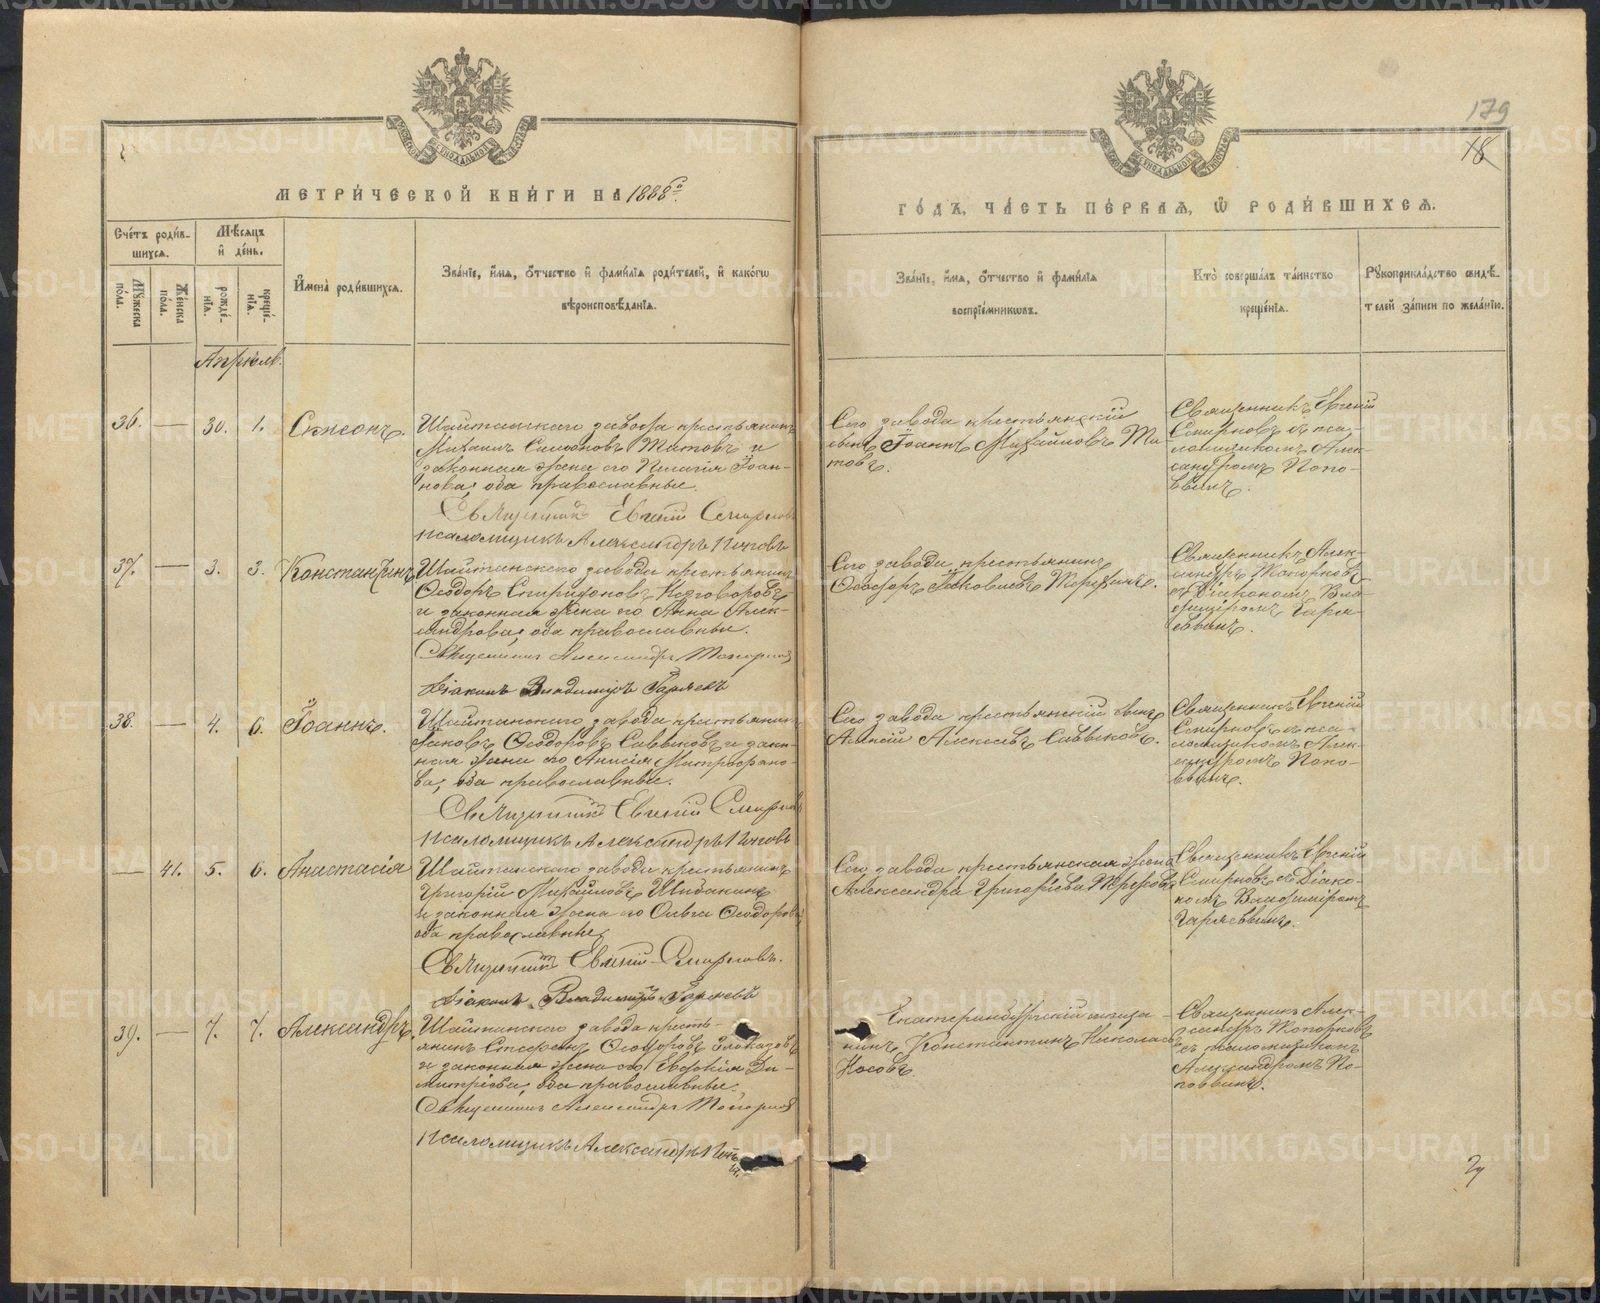 179
18
МЕТРИ́ЧЕСКОЙ КНИ́ГИ НА 1888 го
ГО́ДЪ, ЧА́СТЬ ПЕ́РВАЯ, Ѿ РОДИ́ВШИХСЯ.
Сче́тъ роди́в-
шихся.
Мѣ́сяцъ
и҆ де́нь.
И҆мена̀ роди́вшихся.
Зва́нїе, и҆́мя, ѻ҆́тчество и҆ фами́лїя роди́телей, и҆ како́гѡ
вѣроисповѣ́данїя.
Зва́нїе, и҆́мя, ѻ҆́тчество и҆ фами́лїя
воспрїе́мникѡвъ.
Кто̀ соверша́лъ та́инство
креще́нїя.
Рꙋкоприкла́дство свидѣ́-
телей за́писи по жела́нїю.
Мꙋ́жеска
по́ла.
Же́нска
по́ла.
рожде́-
нїя.
креще́-
нїя.
Апрѣль.
36. — 30. 1. Симеонъ.
Шайтанскаго завода крестьянинъ
Михаилъ Симеоновъ Титовъ и
законная жена его Пелагія Іоан-
нова; оба православные.
Священникъ Евгеній Смирновъ
псаломщикъ Александръ Поповъ
Сего завода крестьянскій
сынъ Іоаннъ Михайловъ Ти-
товъ.
Священникъ Евгеній
Смирновъ съ пса-
ломщикомъ Алек-
сандромъ Попо-
вымъ.
37. — 3. 3. Константинъ
Шайтанскаго завода крестьянинъ
Ѳеодоръ Спиридоновъ
и законная жена его Анна Алек-
сандрова; оба православные.
Священникъ Александръ Топорковъ
Діаконъ Владимиръ
Сего завода крестьянинъ
Ѳеодоръ Іаковлевъ
Священникъ Алек-
сандръ Топорковъ
съ Діакономъ Вла-
димиромъ
38. — 4. 6. Іоаннъ.
Шайтанскаго завода крестьянинъ
Іаковъ Ѳеодоровъ Саввиковъ и закон-
ная жена его Анисія Митрофано-
ва; оба православные.
Священникъ Евгеній Смирновъ
псаломщикъ Александръ Поповъ
Сего завода крестьянскій сынъ
Алексій Алексѣевъ Саввиковъ.
Священникъ Евгеній
Смирновъ съ пса-
ломщикомъ Алек-
сандромъ Попо-
вымъ.
— 41. 5. 6. Анастасія
Шайтанскаго завода крестьянинъ
Григорій Михайловъ
и законная жена его Ольга Ѳеодорова
оба православные.
Священникъ Евгеній Смирновъ.
Діаконъ Владимиръ
Сего завода крестьянская жена
Александра Григорьева
Священникъ Евгеній
Смирновъ съ Діако-
номъ Владиміромъ
39. — 7. 7. Александръ.
Шайтанскаго завода кресть-
янинъ Стефанъ Ѳеодоровъ Злоказовъ
и законная жена его Евдокія Ди-
митріева; оба православные.
Священникъ Александръ Топорковъ
Псаломщикъ Александръ Поповъ
Екатеринбургскій мѣща-
нинъ Константинъ Николаевъ
Носовъ
Священникъ Алек-
сандръ Топорковъ
съ псаломщикомъ
Александромъ По-
повымъ.
METRIKI.GASO-URAL.RU